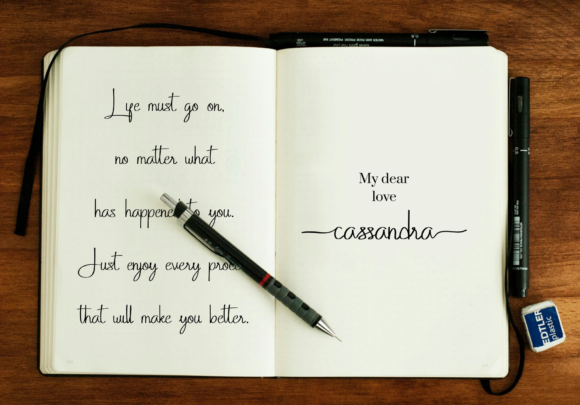 Life must go on,
no matter what
has happened to you.
Just enjoy every
that will make you better.
My dear
love
cassandra
EDTLER
plastic